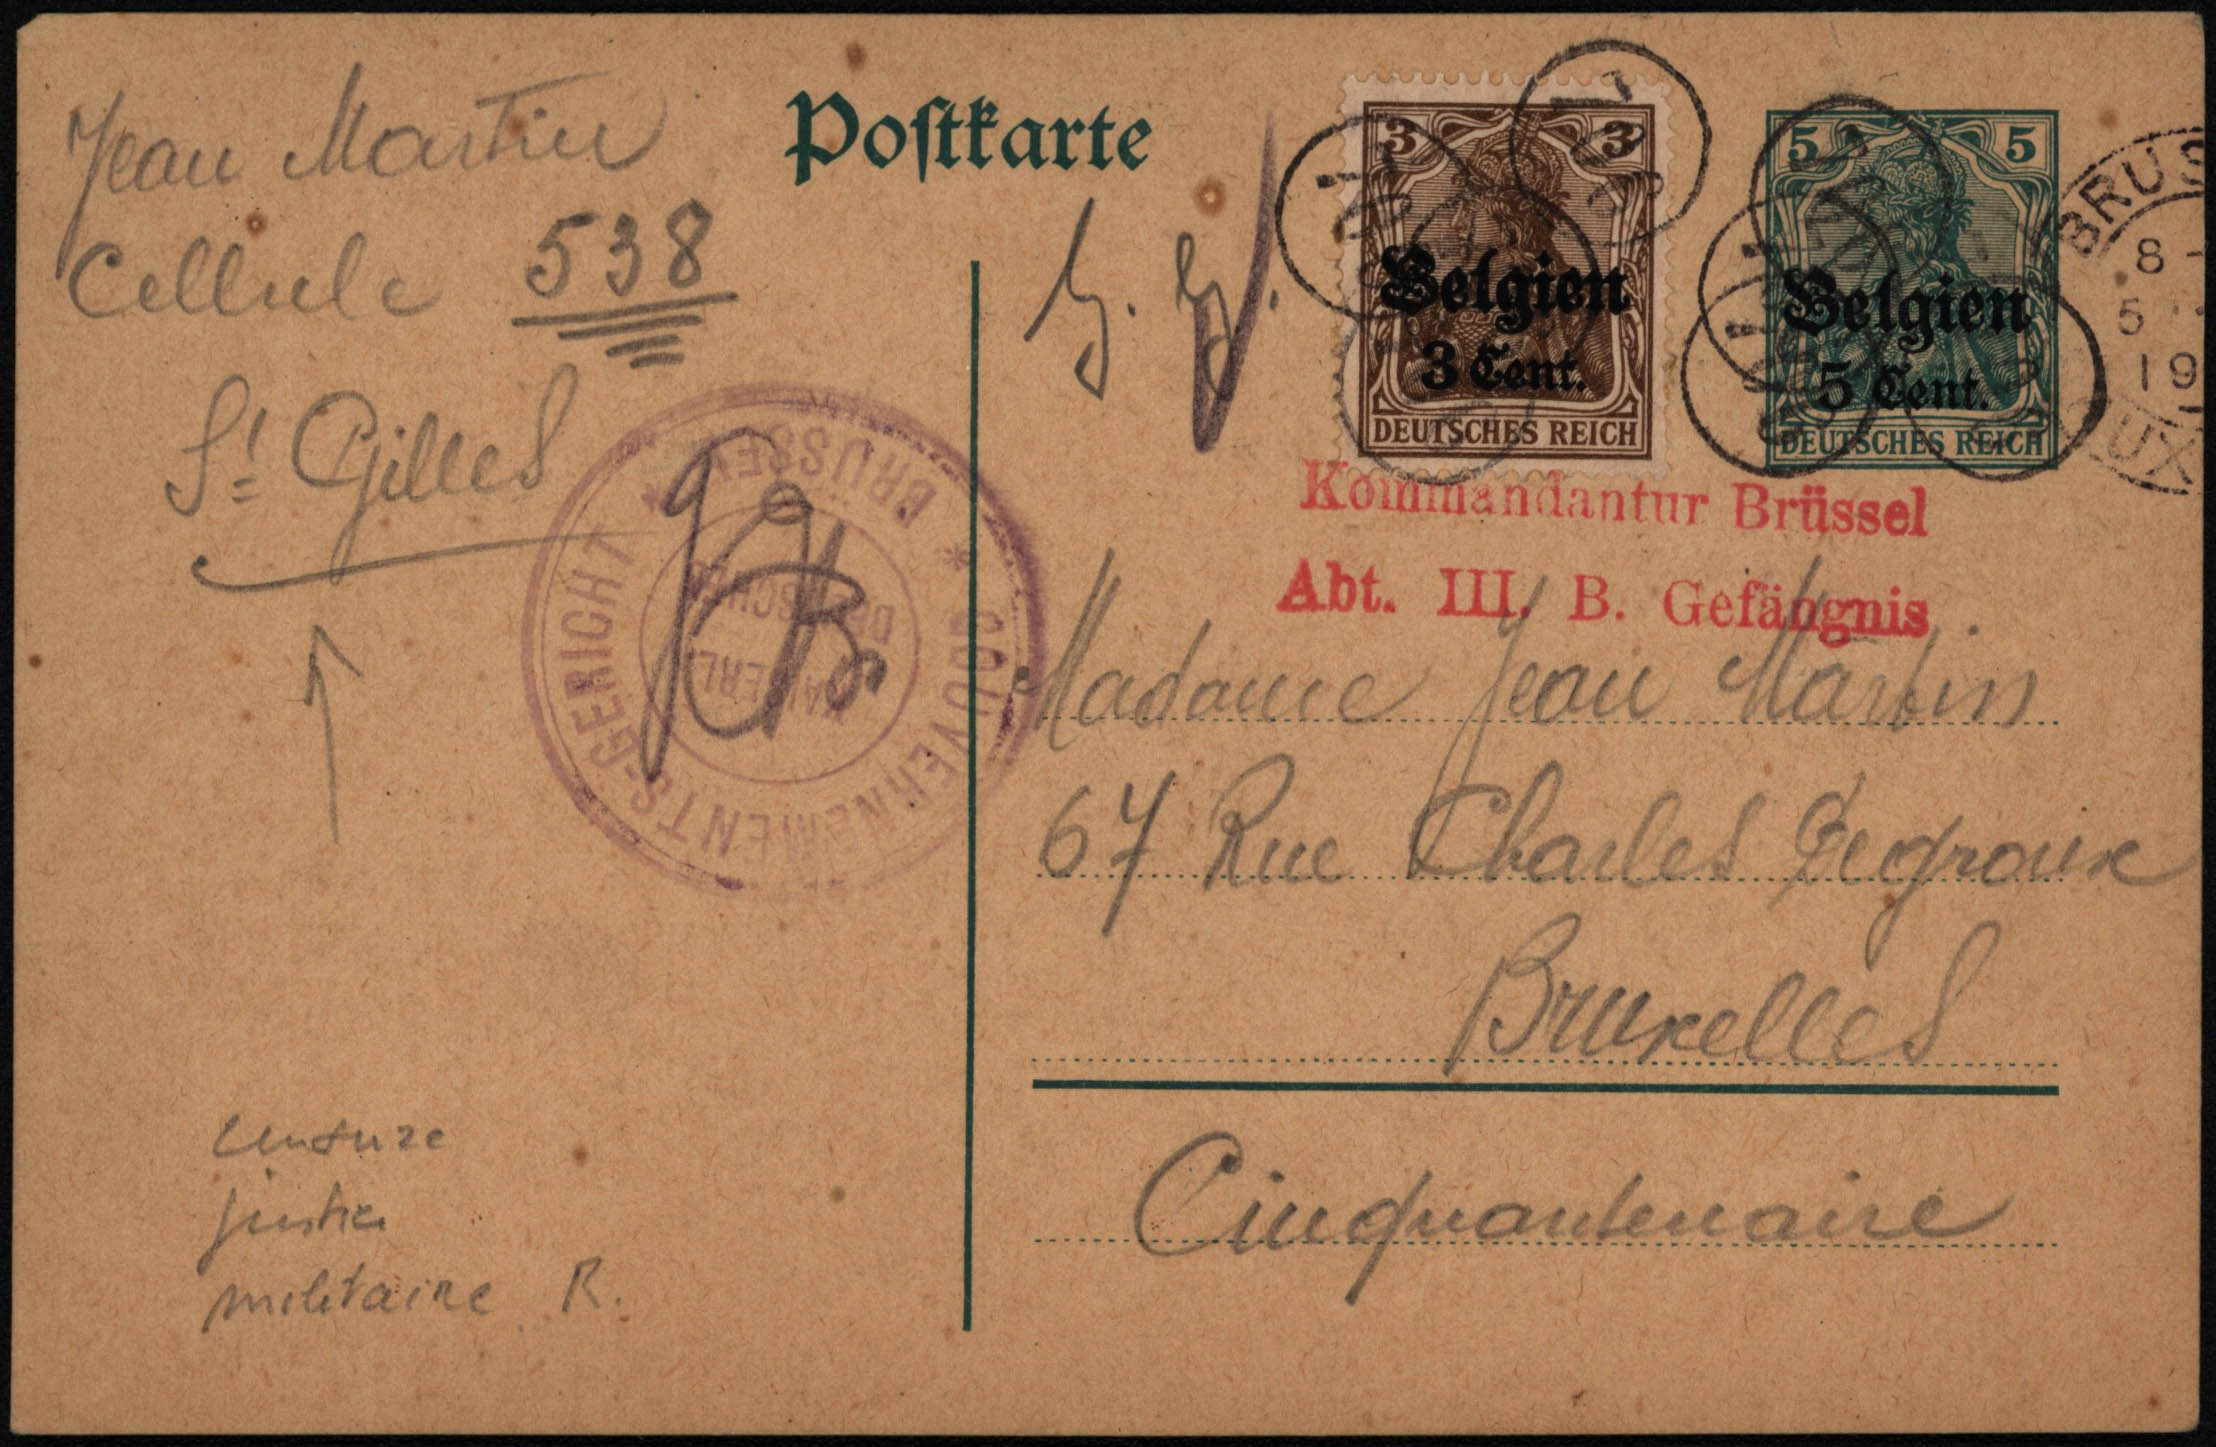 Jean Martin
Cellule 538
St Gilles
Postkarte
3 3
Belgien
3 Cent.
DEUTSCHES REICH
5 5
Belgien
5 Cent.
DEUTSCHES REICH
BRUS
8 -
5
19
UX
Kommandantur Brüssel
Abt. III. B. Gefängnis
* GOUVERNEMENTS-GERICHT * BRÜSSEL
KAISERL.
DEUTSCHES
Madame Jean Martin
67 Rue Charles Degroux
Bruxelles
Cinquantenaire
censure
justice
militaire R.